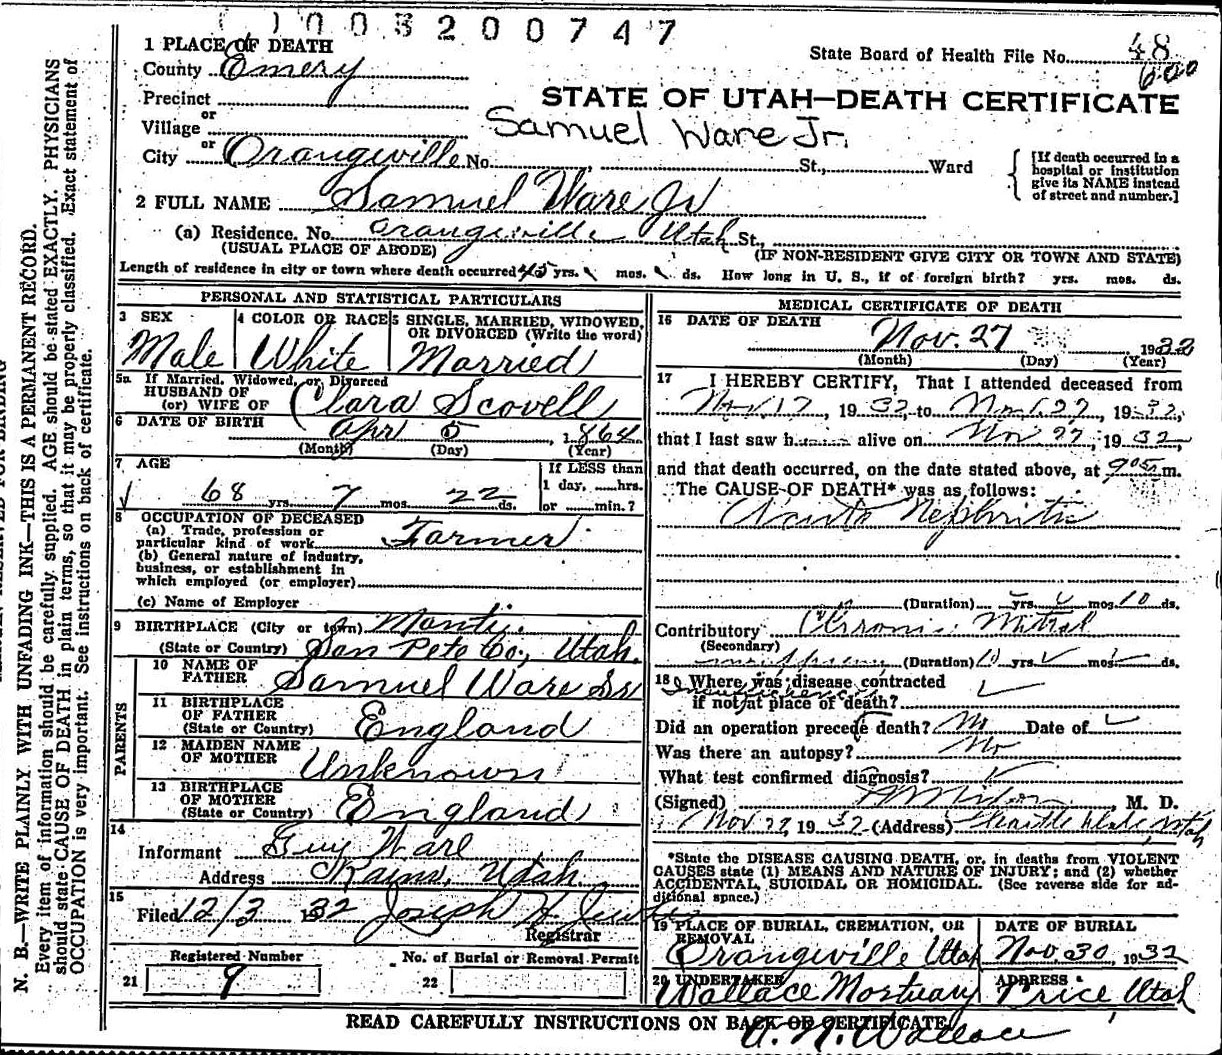 003200747
1 PLACE OF DEATH
State Board of Health File No. 48
600
County Emery
Precinct
or
STATE OF UTAH—DEATH CERTIFICATE
Village
Samuel Ware Jr.
or
City Orangeville No. St., Ward
[If death occurred in a hospital or institution give its NAME instead of street and number.]
2 FULL NAME Samuel Ware Jr
(a) Residence. No. Orangeville Utah St.,
(USUAL PLACE OF ABODE) (IF NON-RESIDENT GIVE CITY OR TOWN AND STATE)
Length of residence in city or town where death occurred 45 yrs. mos. ds. How long in U. S., if of foreign birth? yrs. mos. ds.
PERSONAL AND STATISTICAL PARTICULARS
3 SEX Male
4 COLOR OR RACE White
5 SINGLE, MARRIED, WIDOWED, OR DIVORCED (Write the word) Married
5a If Married, Widowed, or Divorced
HUSBAND OF
(or) WIFE OF Clara Scovell
6 DATE OF BIRTH Apr 5, 1864
(Month) (Day) (Year)
7 AGE
68 yrs. 7 mos. 22 ds.
If LESS than
1 day, hrs.
or min.?
8 OCCUPATION OF DECEASED
(a) Trade, profession or
particular kind of work Farmer
(b) General nature of industry,
business, or establishment in
which employed (or employer)
(c) Name of Employer
9 BIRTHPLACE (City or town) Manti
(State or Country) San Pete Co., Utah.
PARENTS
10 NAME OF FATHER Samuel Ware Sr
11 BIRTHPLACE OF FATHER (State or Country) England
12 MAIDEN NAME OF MOTHER Unknown
13 BIRTHPLACE OF MOTHER (State or Country) England
14
Informant Guy Ware
Address Kains, Utah.
15
Filed 12/3 1932 Joseph H
Registrar
Registered Number
21 9
No. of Burial or Removal Permit
22
MEDICAL CERTIFICATE OF DEATH
16 DATE OF DEATH Nov. 27 1932
(Month) (Day) (Year)
17 I HEREBY CERTIFY, That I attended deceased from
Nov. 17, 1932, to Nov. 27, 1932,
that I last saw h alive on Nov 27, 1932,
and that death occurred, on the date stated above, at 905 m.
The CAUSE OF DEATH* was as follows:
Acute Nephritis
(Duration) yrs. mos. 10 ds.
Contributory Chronic Mitral
(Secondary)
(Duration) 10 yrs. mos. ds.
18 Where was disease contracted
if not at place of death?
Did an operation precede death? No Date of
Was there an autopsy? No
What test confirmed diagnosis?
(Signed) , M. D.
Nov 29, 1932 (Address) Castle Dale, Utah
*State the DISEASE CAUSING DEATH, or, in deaths from VIOLENT
CAUSES state (1) MEANS AND NATURE OF INJURY; and (2) whether
ACCIDENTAL, SUICIDAL OR HOMICIDAL. (See reverse side for ad-
ditional space.)
19 PLACE OF BURIAL, CREMATION, OR REMOVAL Orangeville Utah
DATE OF BURIAL Nov. 30, 1932
20 UNDERTAKER Wallace Mortuary
ADDRESS Price, Utah
READ CAREFULLY INSTRUCTIONS ON BACK OF CERTIFICATE
Wallace
N. B.—WRITE PLAINLY WITH UNFADING INK—THIS IS A PERMANENT RECORD.
Every item of information should be carefully supplied. AGE should be stated EXACTLY. PHYSICIANS
should state CAUSE OF DEATH in plain terms, so that it may be properly classified. Exact statement of
OCCUPATION is very important. See instructions on back of certificate.